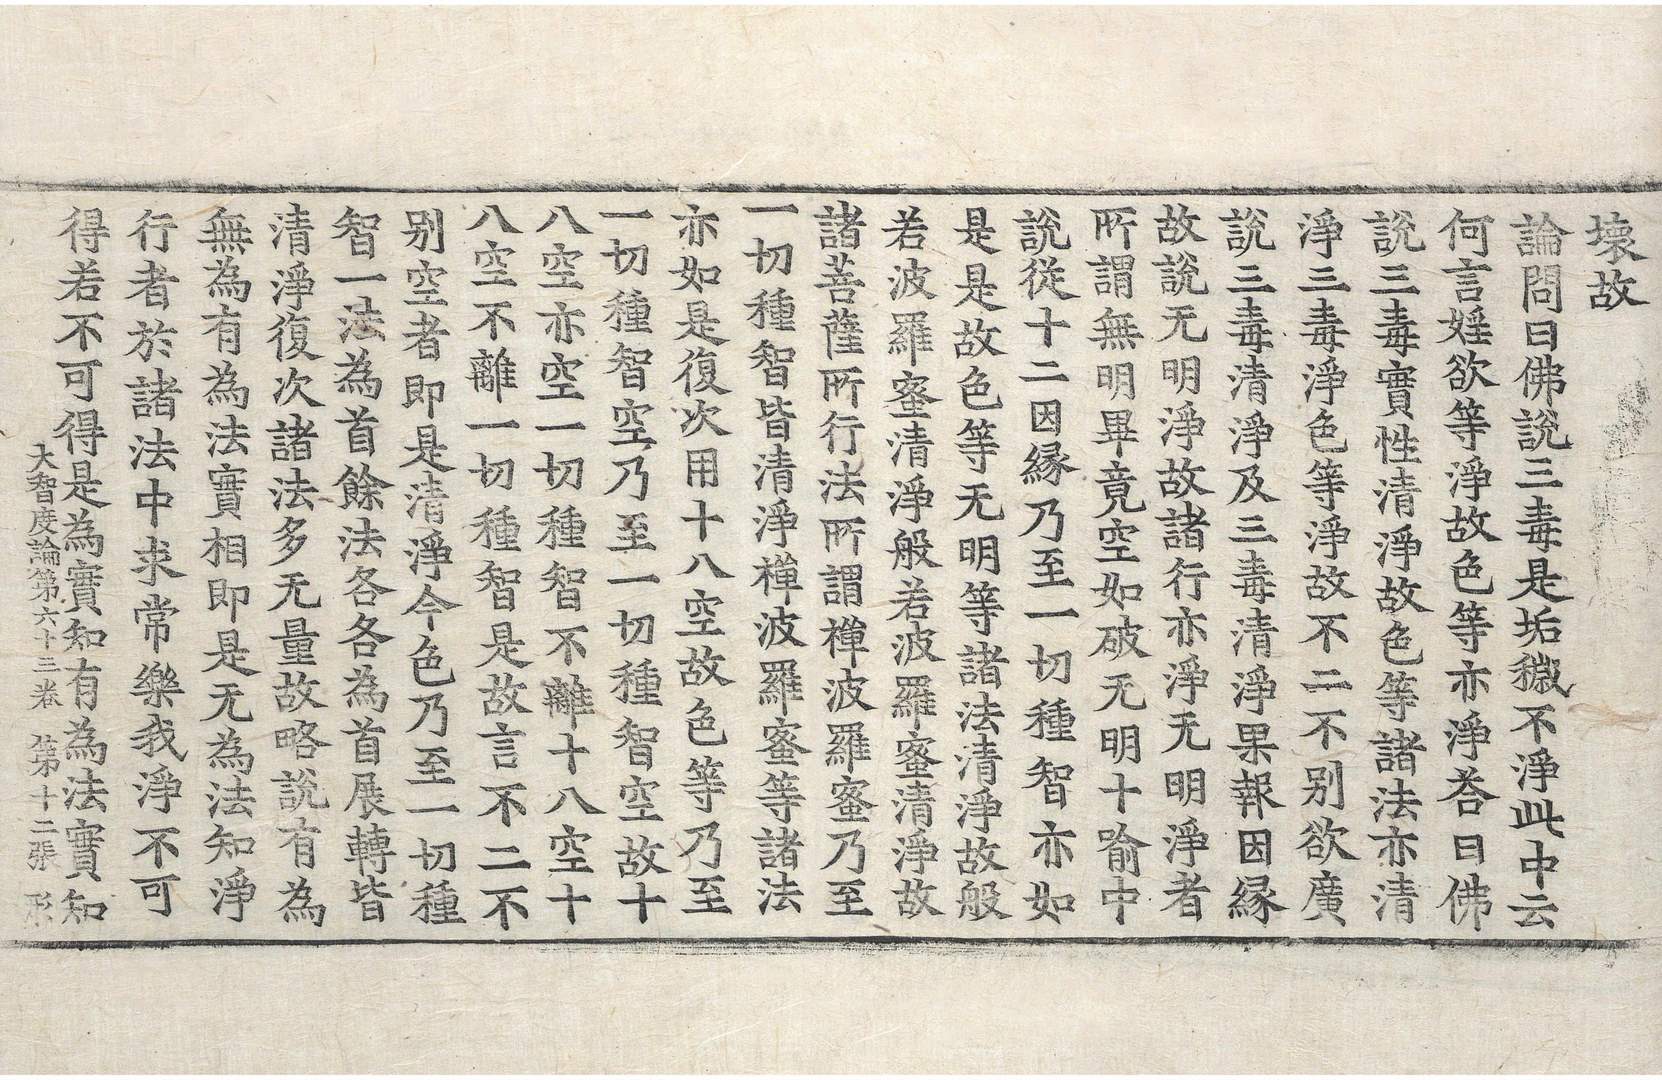 壞故
論問曰佛說三毒是垢穢不淨此中云
何言婬欲等淨故色等亦淨荅曰佛
說三毒實性清淨故色等諸法亦清
淨三毒淨色等淨故不二不别欲廣
說三毒清淨及三毒清淨果報因緣
故說无明淨故諸行亦淨无明淨者
所謂無明畢竟空如破无明十喻中
說從十二因緣乃至一切種智亦如
是是故色等无明等諸法清淨故般
若波羅蜜清淨般若波羅蜜清淨故
諸菩薩所行法所謂禪波羅蜜乃至
一切種智皆清淨禪波羅蜜等諸法
亦如是復次用十八空故色等乃至
一切種智空乃至一切種智空故十
八空亦空一切種智不離十八空十
八空不離一切種智是故言不二不
别空者即是清淨今色乃至一切種
智一法為首餘法各各為首展轉皆
清淨復次諸法多无量故略說有為
無為有為法實相即是无為法知淨
行者於諸法中求常樂我淨不可
得若不可得是為實知有為法實知
大智度論第六十三卷 第十二張 形